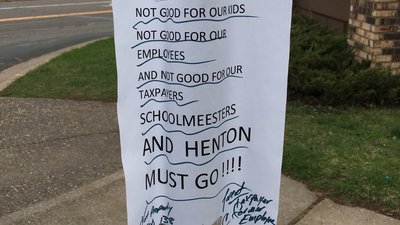 NOT GOOD FOR OUR KIDS
NOT GOOD FOR OUR
EMPLOYEES
AND NOT GOOD FOR OUR
TAXPAYERS
SCHOOLMEESTERS
AND HENTON
MUST GO!!!!
Property
Taxpayer
Former
Employee